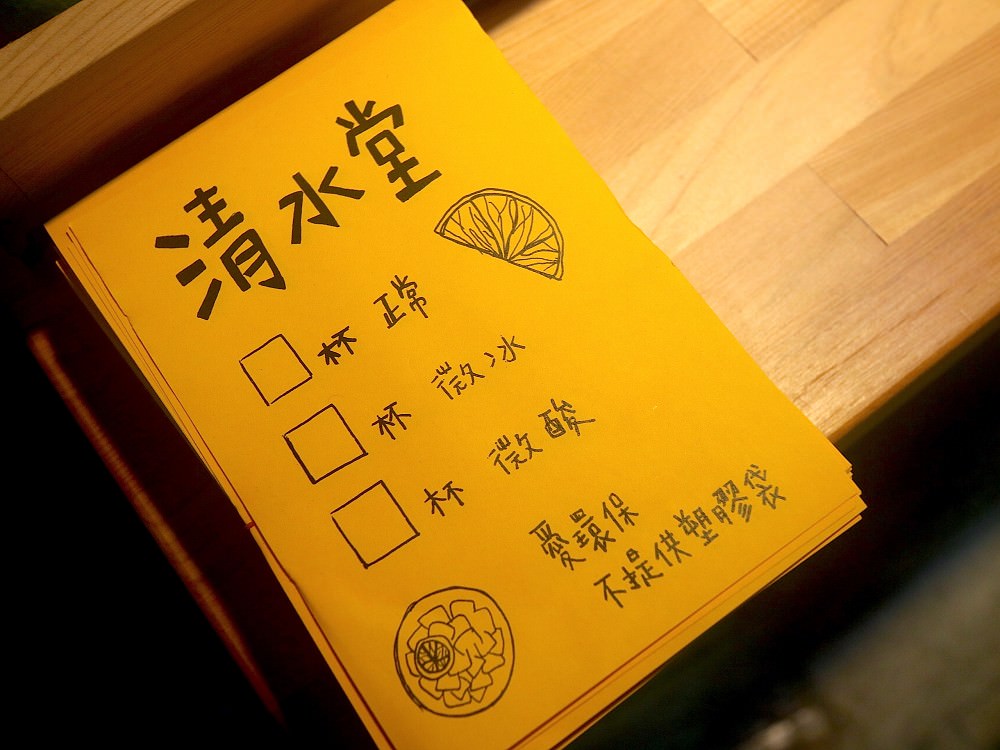 清水堂
杯 正常
杯 微冰
杯 微酸
愛環保
不提供塑膠袋